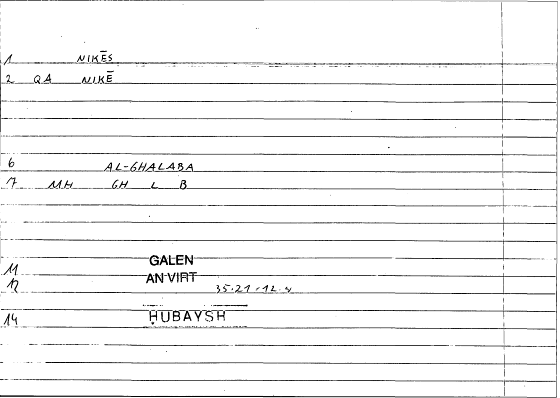 1 NIKĒS
2 QA NIKĒ
6 AL-GHALABA
7 MH GH L B
11 GALEN
12 AN VIRT 35.21.12
14 ḤUBAYSH